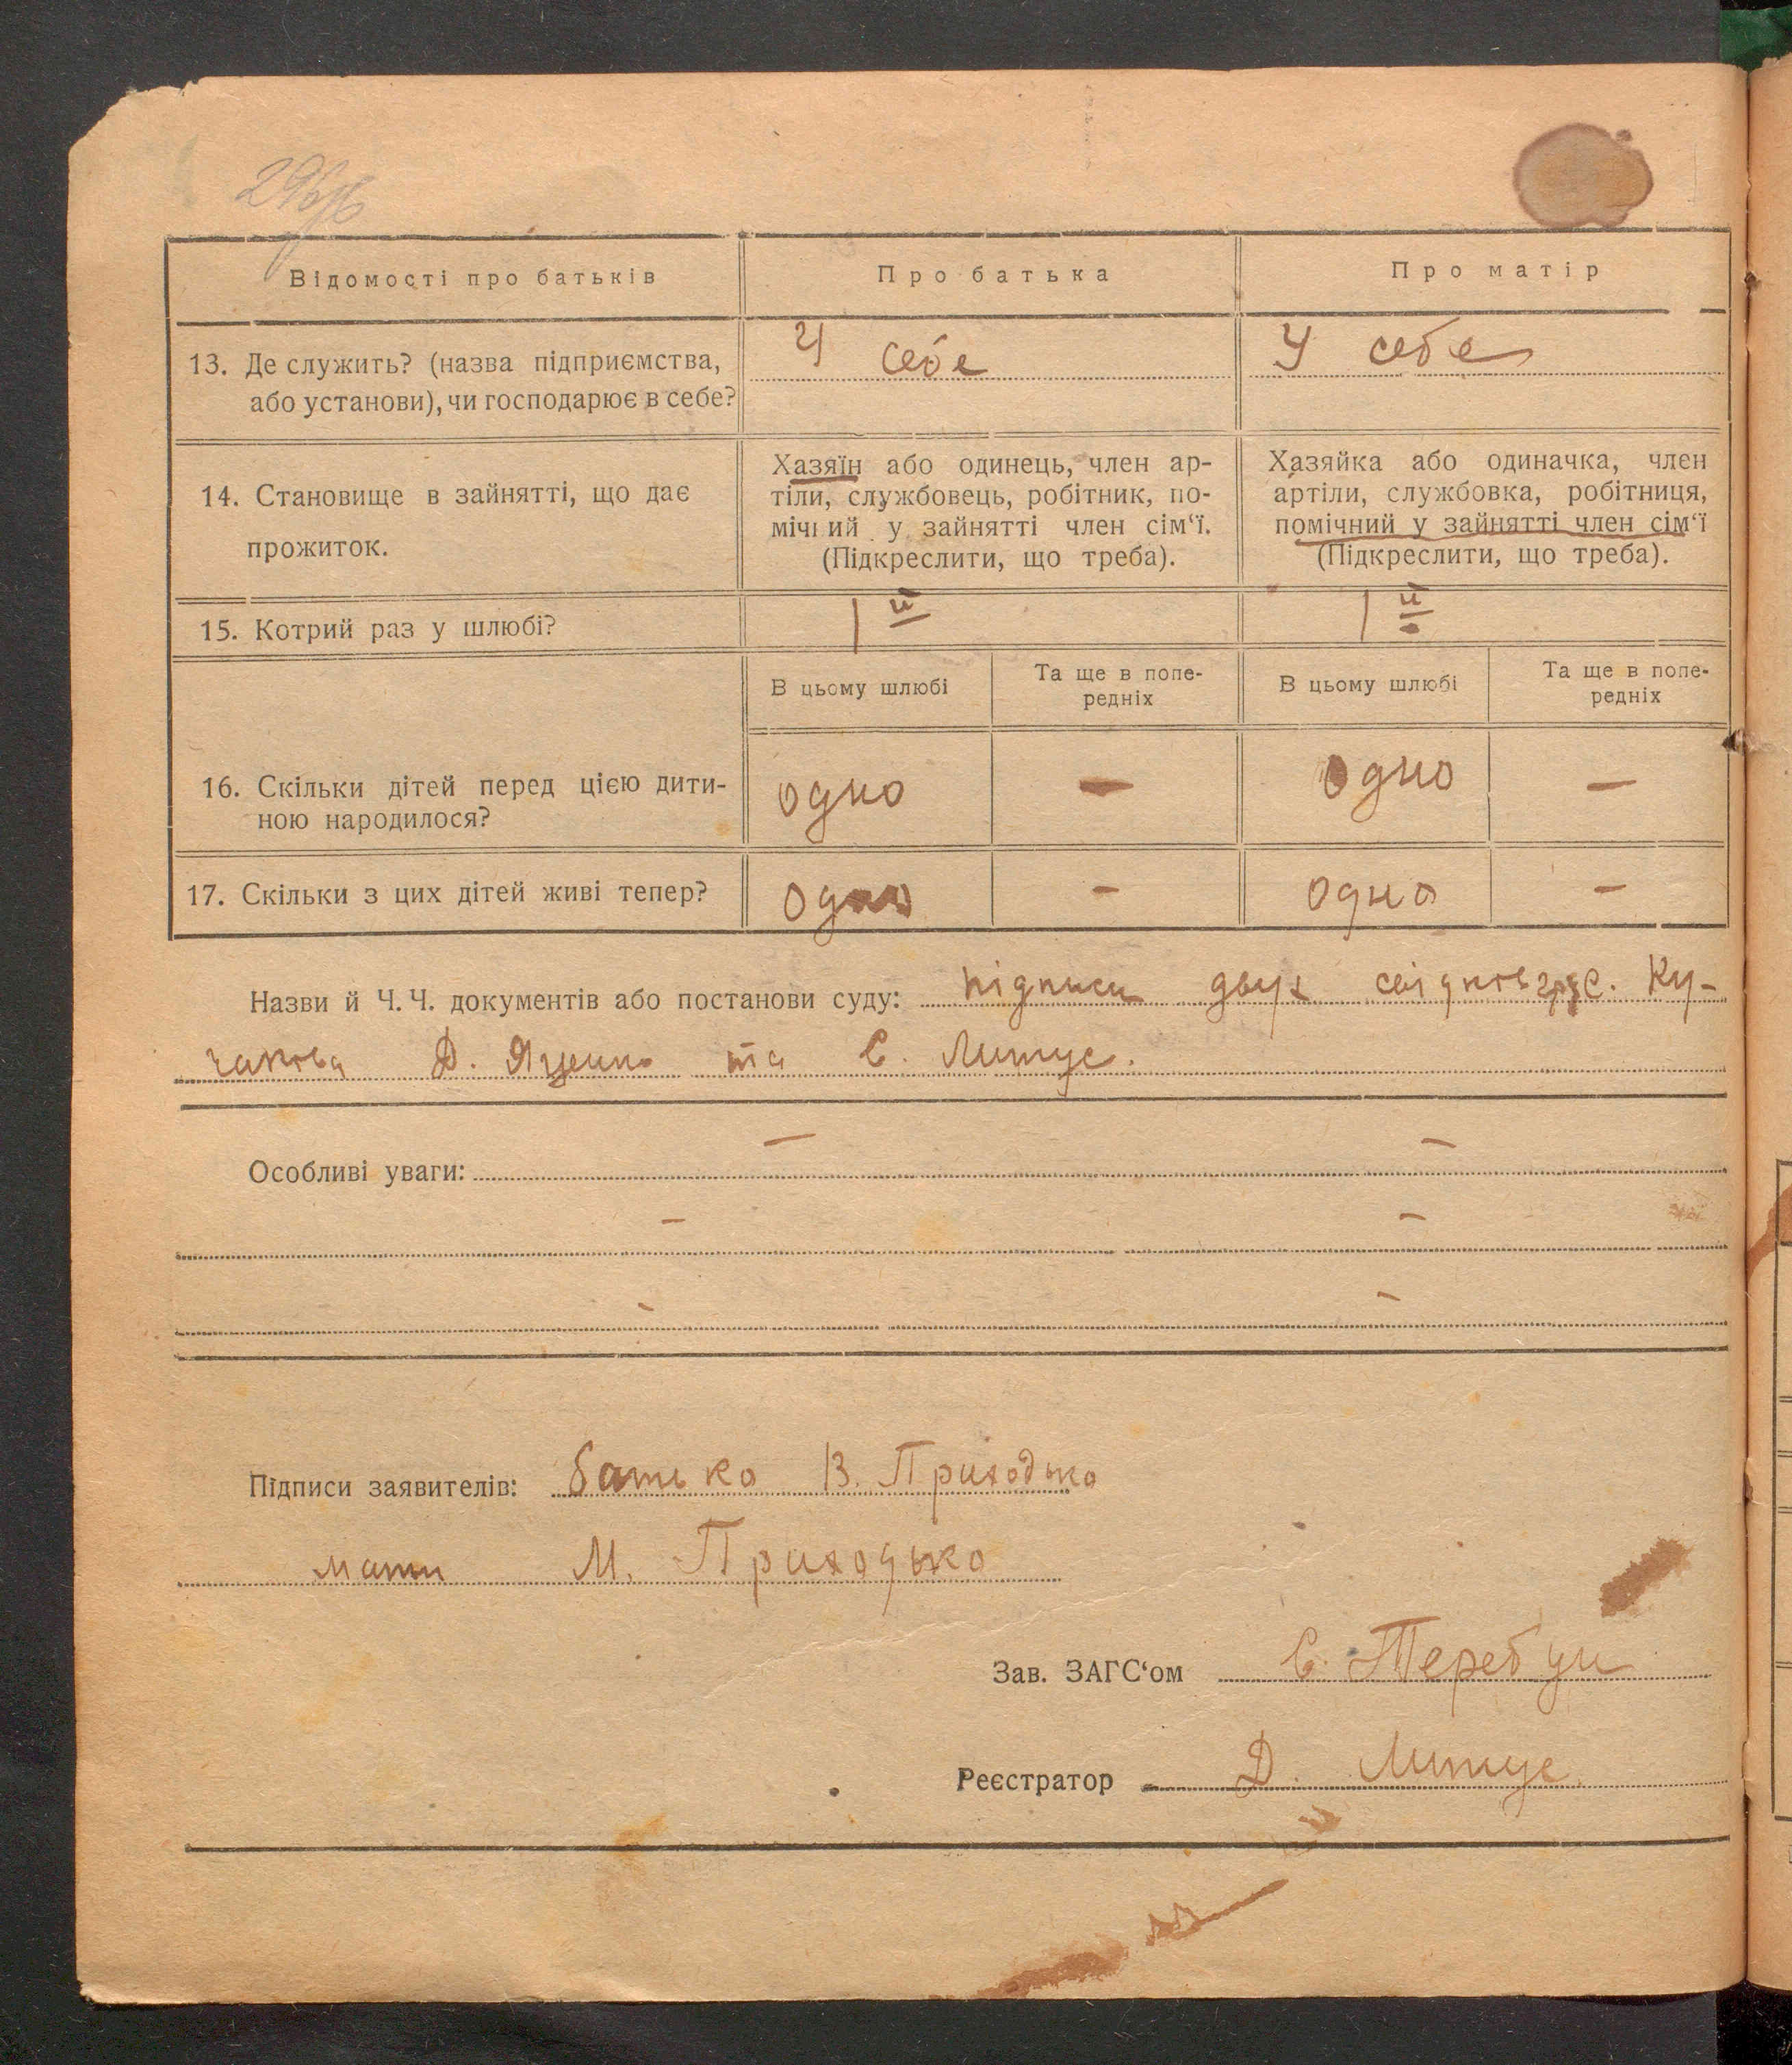 Відомості про батьків
Про батька
Про матір
13. Де служить? (назва підприємства,
або установи), чи господарює в себе?
У себе
У себе
14. Становище в зайнятті, що дає
прожиток.
Хазяїн або одинець, член ар-
тіли, службовець, робітник, по-
мічний у зайнятті член сім‘ї.
(Підкреслити, що треба).
Хазяйка або одиначка, член
артіли, службовка, робітниця,
помічний у зайнятті член сім‘ї
(Підкреслити, що треба).
15. Котрий раз у шлюбі?
1й
1й
В цьому шлюбі
Та ще в попе-
редніх
В цьому шлюбі
Та ще в попе-
редніх
16. Скільки дітей перед цією дити-
ною народилося?
одно
—
одно
—
17. Скільки з цих дітей живі тепер?
одно
-
одно
-
Назви й Ч.Ч. документів або постанови суду: підписи двух свідків гр. с. Ку-
Д. Яценко та С. Литус.
Особливі уваги: — —
- -
- -
Підписи заявителів: батько В. Приходько
мати М. Приходько
Зав. ЗАГС‘ом С. Теребун
Реєстратор Д. Литус.